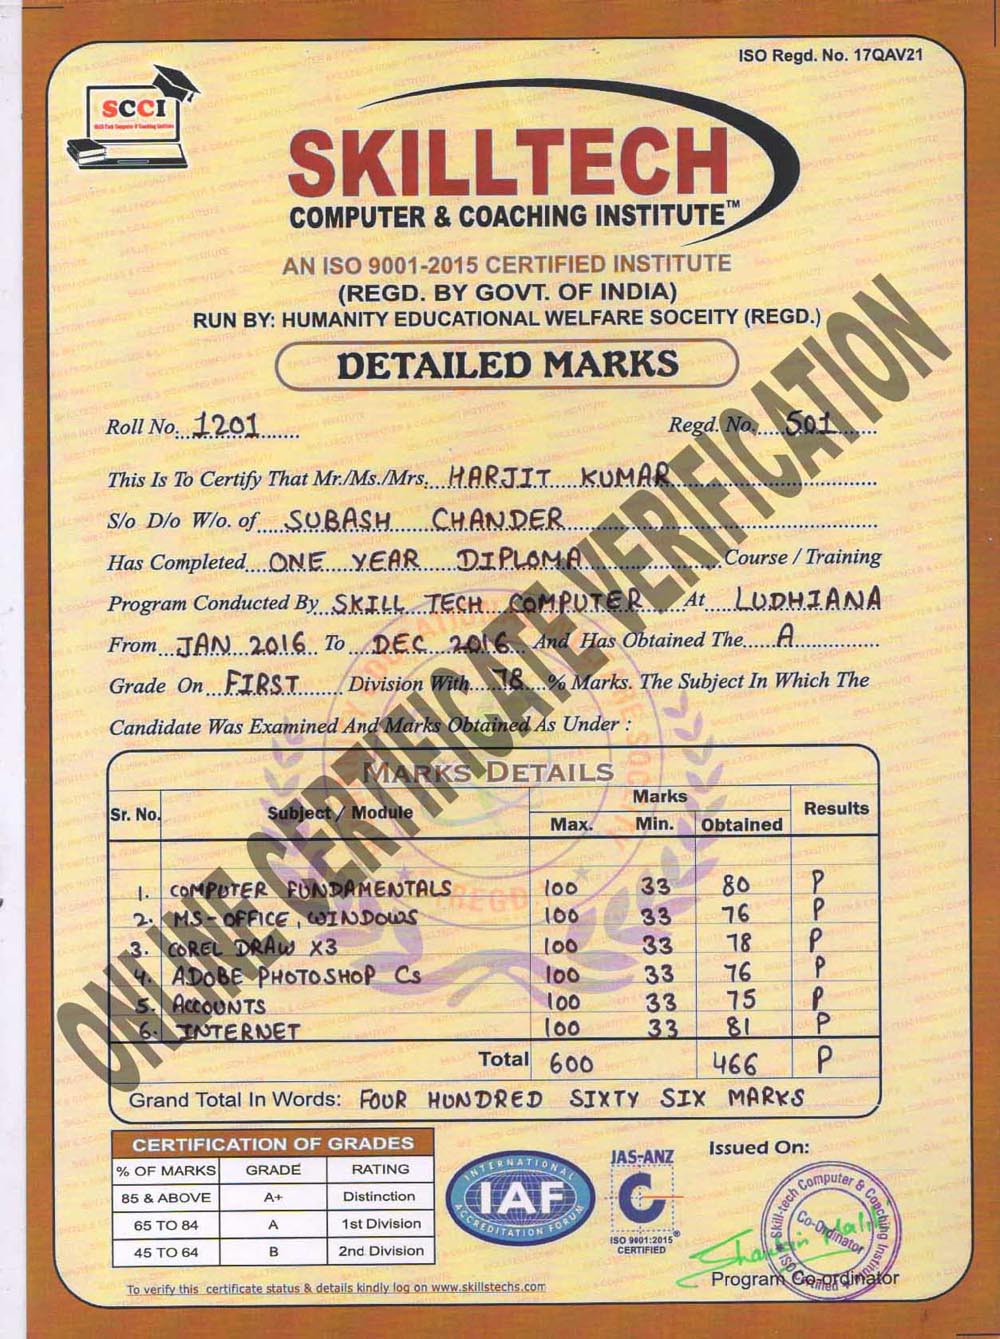 ISO Regd. No. 17QAV21
SCCI
SKILLTECH
COMPUTER & COACHING INSTITUTE™
AN ISO 9001-2015 CERTIFIED INSTITUTE
(REGD. BY GOVT. OF INDIA)
RUN BY: HUMANITY EDUCATIONAL WELFARE SOCEITY (REGD.)
DETAILED MARKS
Roll No. 1201 Regd. No. 501
This Is To Certify That Mr./Ms./Mrs. HARJIT KUMAR
S/o D/o W/o. of SUBASH CHANDER
Has Completed ONE YEAR DIPLOMA Course / Training
Program Conducted By SKILL TECH COMPUTER At LUDHIANA
From JAN 2016 To DEC 2016 And Has Obtained The A
Grade On FIRST Division With 78 % Marks. The Subject In Which The
Candidate Was Examined And Marks Obtained As Under :
ONLINE CERTIFICATE VERIFICATION
MARKS DETAILS
Sr. No. Subject / Module Marks Results
Max. Min. Obtained
1. COMPUTER FUNDAMENTALS 100 33 80 P
2. MS-OFFICE, WINDOWS 100 33 76 P
3. COREL DRAW X3 100 33 78 P
4. ADOBE PHOTOSHOP Cs 100 33 76 P
5. ACCOUNTS 100 33 75 P
6. INTERNET 100 33 81 P
Total 600 466 P
Grand Total In Words: FOUR HUNDRED SIXTY SIX MARKS
CERTIFICATION OF GRADES
% OF MARKS GRADE RATING
85 & ABOVE A+ Distinction
65 TO 84 A 1st Division
45 TO 64 B 2nd Division
INTERNATIONAL
IAF
ACCREDITATION FORUM
JAS-ANZ
C
ISO 9001:2015
CERTIFIED
Issued On:
Skill-tech Computer & Coaching Institute
Co-Ordinator
ISO Certified
Program Co-ordinator
To verify this certificate status & details kindly log on www.skillstechs.com